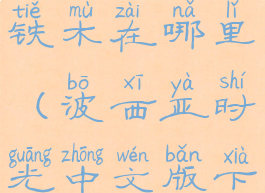 tiě mù zài nǎ lǐ
铁木在哪里
bō xī yà shí
（波西亚时
guāng zhōng wén bǎn xià
光中文版下